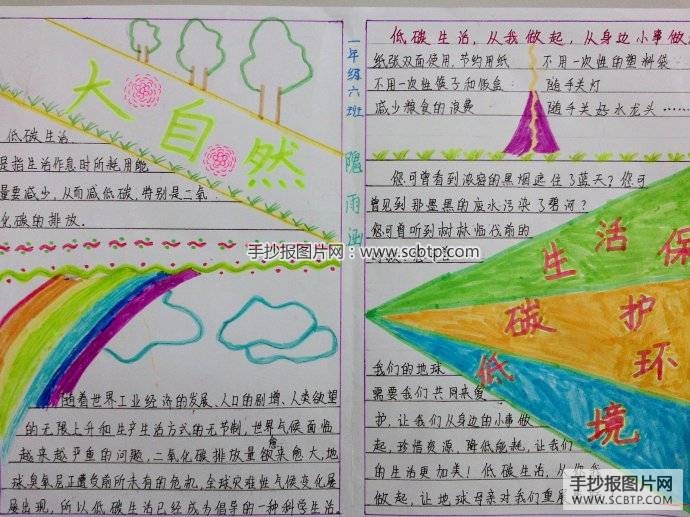 大自然
低碳生活
是指生活作息时所耗用能
量要减少，从而减低碳，特别是二氧
化碳的排放．
一年级六班
雨涵
手抄报图片网：www.scbtp.com
随着世界工业经济的发展、人口的剧增、人类欲望
的无限上升和生产生活方式的无节制，世界气候面临
越来越严重的问题，二氧化碳排放量愈来愈大，地
球臭氧层正遭负前所未有的危机，全球灾难性气候变化屡
屡出现，所以低碳生活已经成为倡导的一种科学生活．
低碳生活，从我做起，从身边小事做
纸张双面使用，节约用纸 不用一次性的塑料袋
不用一次性筷子和饭盒 随手关灯
减少粮食的浪费 随手关好水龙头……
您可曾看到浓密的黑烟遮住了蓝天？您可
曾见到那墨黑的废水污染了碧河？
您可曾听到树林临伐前的
生活保
碳护
低环
境
我们的地球
需要我们共同来爱
护，让我们从身边的小事做
起，珍惜资源，降低能耗，让我们
的生活更加美！低碳生活，从你我
做起，让地球母亲对我们重展
手抄报图片网
WWW.SCBTP.COM